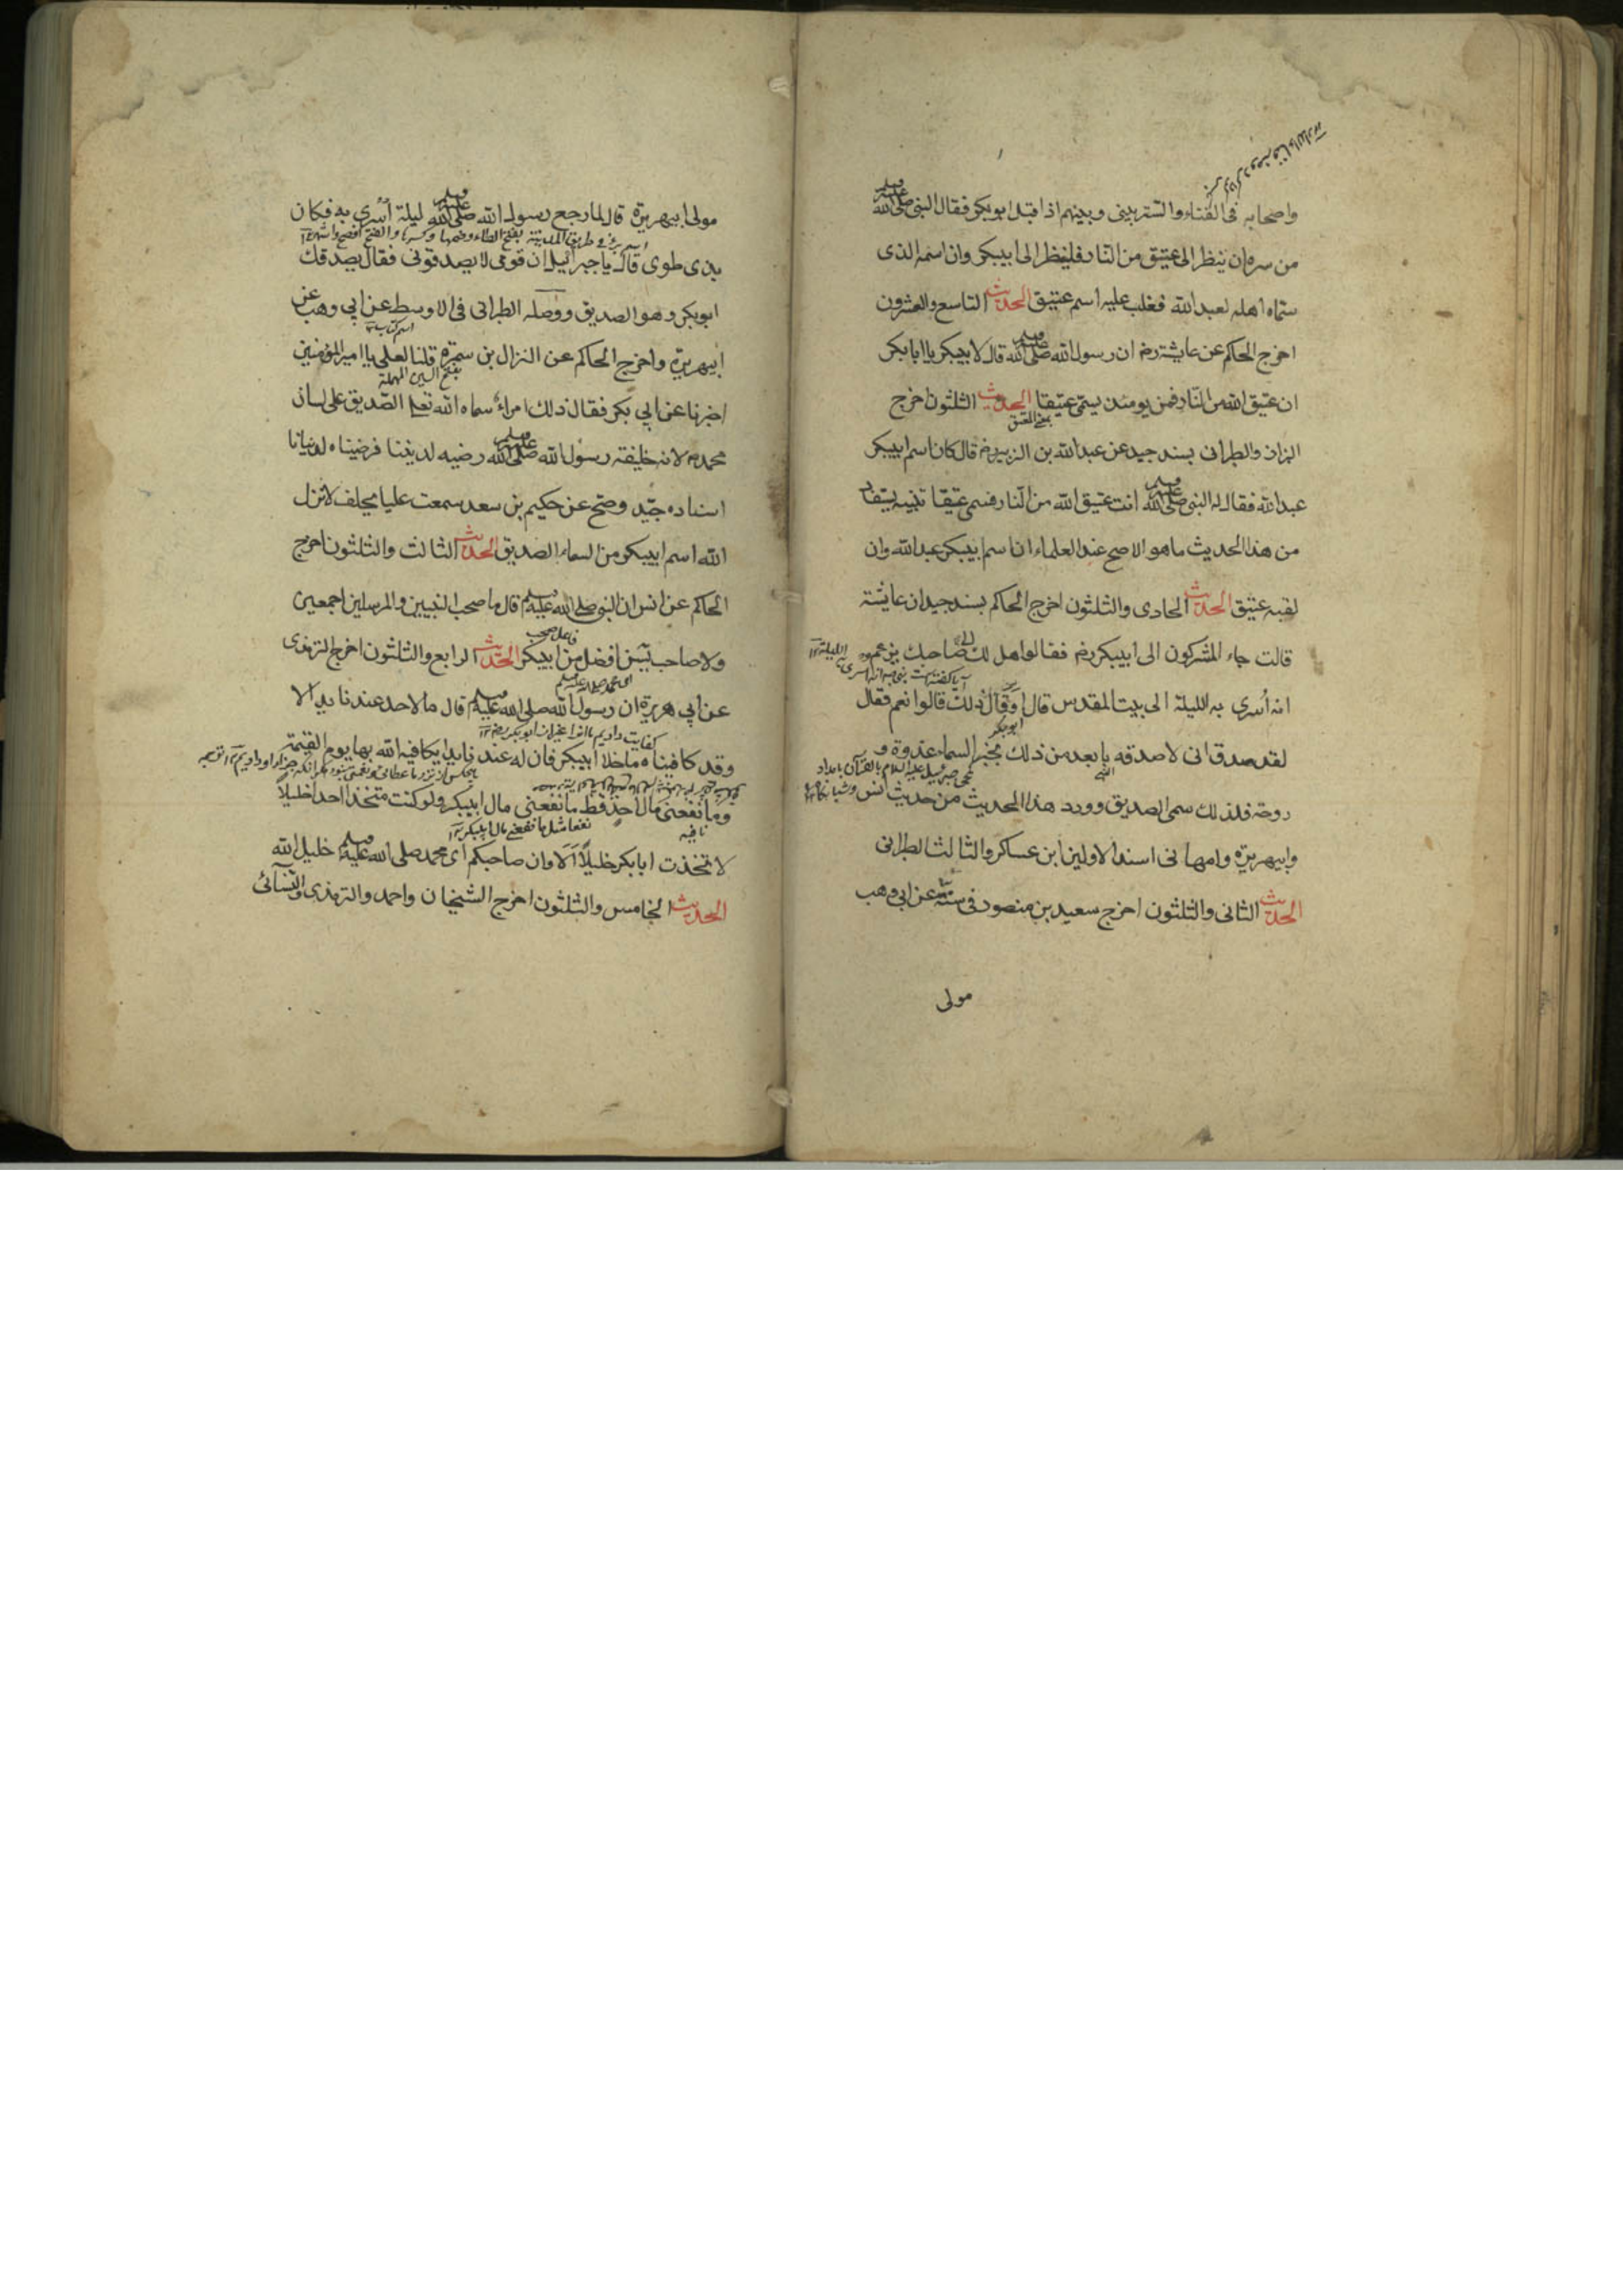 واصحابه فى الفناء والستر بينى وبينهم اذا قبل ابو بكر فقال النبى صلى الله عليه وسلم
من سره ان ينظر الى عتيق من النار فلينظر الى ابيبكر وان اسمه الذى
سماه اهله لعبد الله فغلب عليه اسم عتيق الحديث التاسع والعشرون
اخرج الحاكم عن عايشة رض ان رسول الله صلى الله عليه وسلم قال لابيبكر يا ابا بكر
ان عتيق الله من النار فمن يومئذ يسمى عتيقا الحديث الثلثون اخرج
بمعنى المعتق
البزاز والطبرانى بسند جيد عن عبد الله بن الزبير رض قال كان اسم ابيبكر
عبد الله فقال له النبى صلى الله عليه وسلم انت عتيق الله من النار فسمى عتيقا تنبيه يستفاد
من هذا الحديث ما هو الاصح عند العلماء ان اسم ابيبكر عبد الله وان
لقبه عتيق الحديث الحادى والثلثون اخرج الحاكم بسند جيد ان عايشة
قالت جاء المشركون الى ابيبكر رض فقالوا هل لك الى صاحبك يزعم
انه اسرى به الليلة الى بيت المقدس قال او قال ذلك قالوا نعم فقال
ابو بكر
لقد صدق انى لاصدقه بابعد من ذلك بخبر السماء غدوة و
روحة فلذلك سمى الصديق وورد هذا الحديث من حديث انس
وابيهريرة وامهانى اسند الاولين ابن عساكر والثالث الطبرانى
الحديث الثانى والثلثون اخرج سعيد بن منصور فى سننه عن ابى وهب
مولى
مولى ابيهريرة قال لما رجع رسول الله صلى الله عليه وسلم ليلة اسرى به فكان
بفتح الطاء وضمها وكسرها والفتح افصح واشهر
بذى طوى قال يا جبرائيل ان قومى لا يصدقونى فقال يصدقك
ابو بكر وهو الصديق ووصله الطبرانى فى الاوسط عن ابى وهب عن
اسم كتاب
ابيهريرة واخرج الحاكم عن النزال بن سبرة قلنا لعلى يا امير المؤمنين
بفتح السين المهملة
اخبرنا عن ابى بكر فقال ذلك امراء سماه الله تعلى الصديق على لسان
محمد لانه خليفة رسول الله صلى الله عليه وسلم رضيه لديننا فرضيناه لدنيانا
اسناده جيد وصح عن حكيم بن سعد سمعت عليا يحلف لانزل
الله اسم ابيبكر من السماء الصديق الحديث الثالث والثلثون اخرج
الحاكم عن انس ان النبى صلى الله عليه وسلم قال ما صحب النبيين والمرسلين اجمعين
فاعل صحب
ولا صاحب يس افضل من ابيبكر الحديث الرابع والثلثون اخرج الترمذى
اى محمد صلى الله عليه وسلم
عن ابى هريرة ان رسول الله صلى الله عليه وسلم قال ما لاحد عندنا يد الا
وقد كافيناه ما خلا ابيبكر فان له عندنا يدا يكافيه الله بها يوم القيمة
وما نفعنى مال احد قط ما نفعنى مال ابيبكر ولو كنت متخذا احدا خليلا
نفعا مثل ما نفعنى مال ابيبكر
لاتخذت ابا بكر خليلا الا وان صاحبكم اى محمد صلى الله عليه وسلم خليل الله
الحديث الخامس والثلثون اخرج الشيخان واحمد والترمذى والنسائى